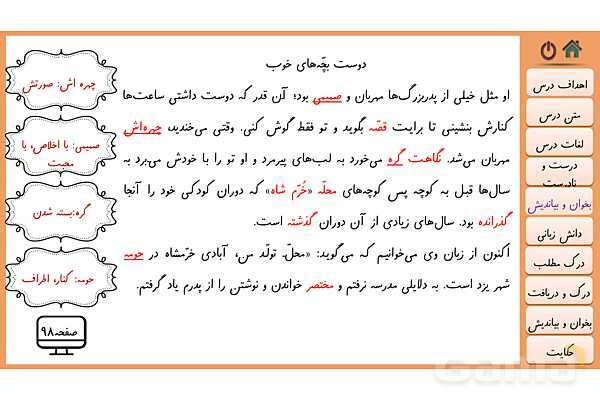 دوست بچّه‌های خوب
او مثل خیلی از پدربزرگ‌ها مهربان و صمیمی بود؛ آن قدر که دوست داشتی ساعت‌ها
کنارش بنشینی تا برایت قصّه بگوید و تو فقط گوش کنی. وقتی می‌خندید، چهره‌اش
مهربان می‌شد. نگاهت گره می‌خورد به لب‌های پیرمرد و او تو را با خودش می‌برد به
سال‌ها قبل به کوچه پس کوچه‌های محلّه «خُرّم شاه» که دوران کودکی خود را آنجا
گذرانده بود. سال‌های زیادی از آن دوران گذشته است.
اکنون از زبان وی می‌خوانیم که می‌گوید: «محلّ تولّد من، آبادی خرّمشاه در حومه
شهر یزد است. به دلایلی مدرسه نرفتم و مختصر خواندن و نوشتن را از پدرم یاد گرفتم.
چهره اش: صورتش
صمیمی: با اخلاص، با
محبت
گره: بسته شدن
حومه: کنار، اطراف
صفحه ۹۸
اهداف درس
متن درس
لغات درس
درست و
نادرست
بخوان و بیاندیش
دانش زبانی
درک مطلب
درک و دریافت
بخوان و بیاندیش
حکایت
Gama